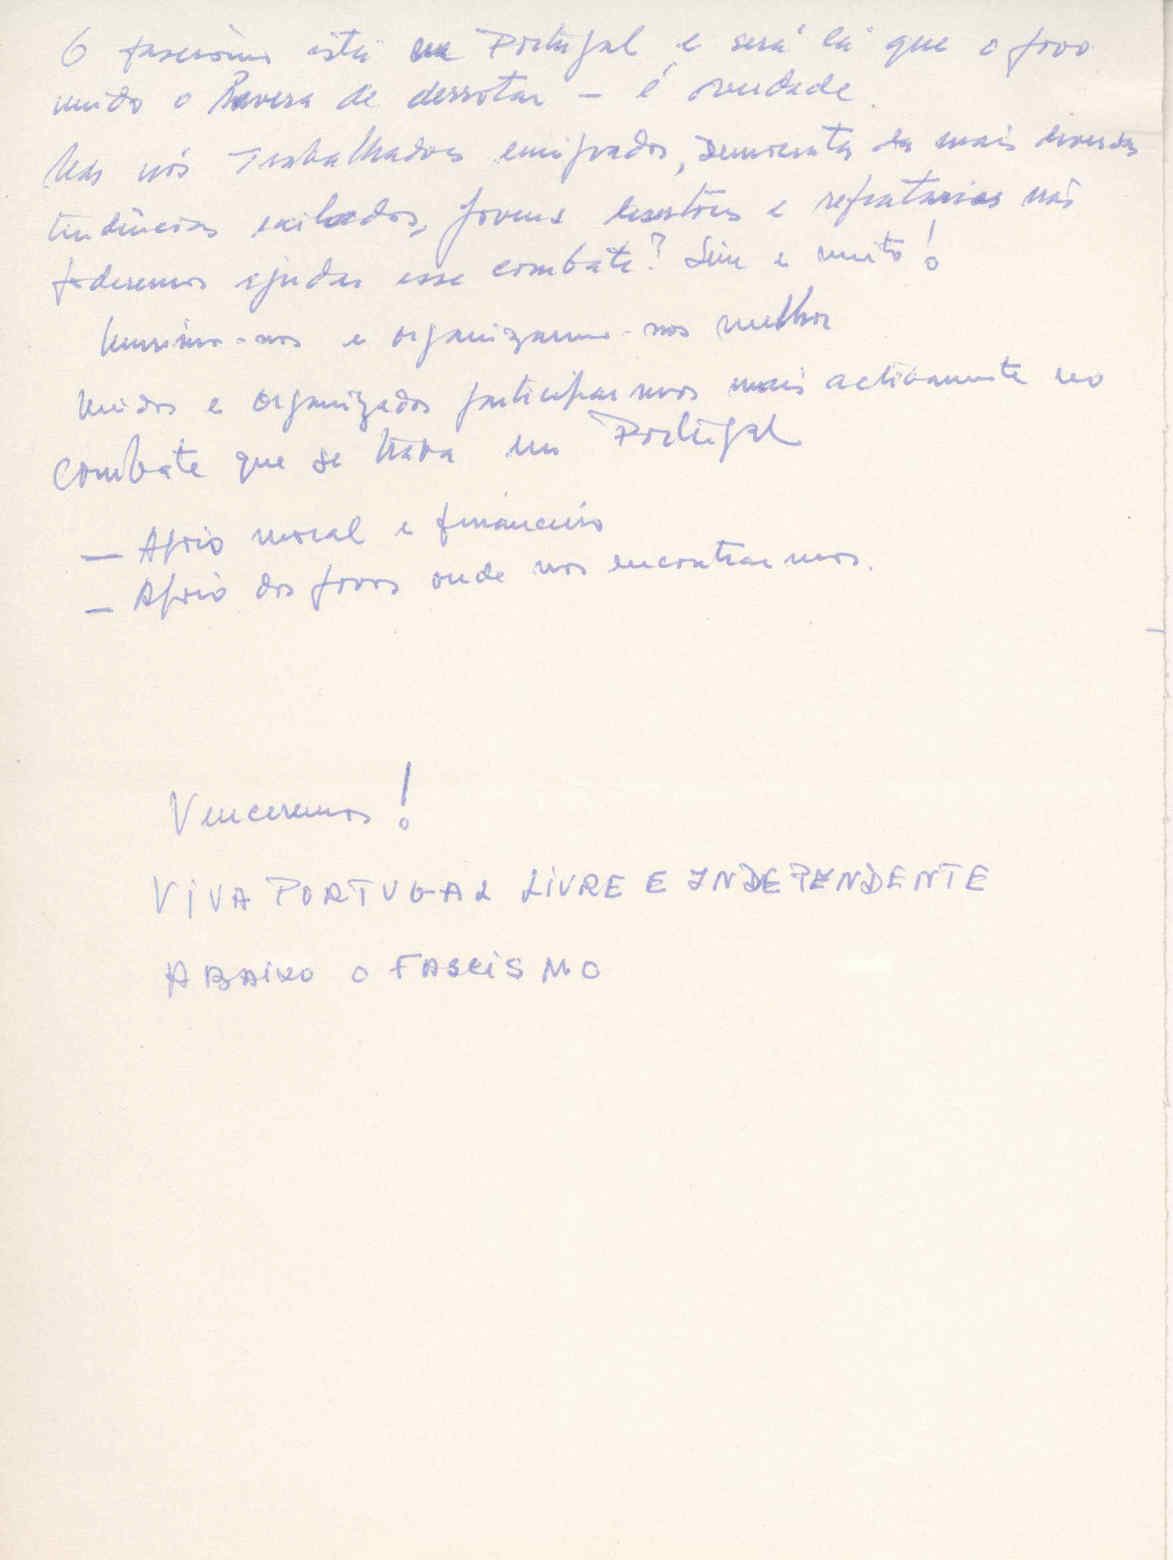 O fascismo está em Portugal e será lá que o povo
unido o haverá de derrotar – é verdade.
Mas nós Trabalhadores emigrados, Democratas das mais diversas
tendências exilados, jovens desertores e refratarios não
poderemos ajudar esse combate? Sim e muito!
Unirmo-nos e organizarmo-nos melhor
Unidos e organizados participarmos mais activamente no
combate que se trava em Portugal
— Apoio moral e financeiro
— Apoio dos povos onde nos encontrarmos.
Venceremos!
VIVA PORTUGAL LIVRE E INDEPENDENTE
ABAIXO O FASCISMO